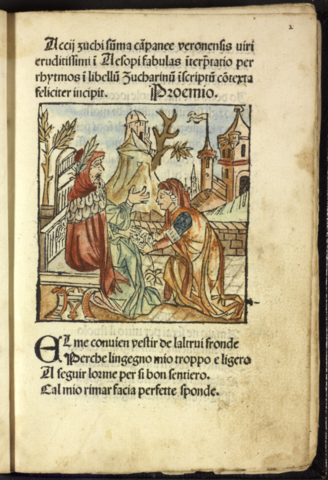 Accij zuchi sūma cāpanee veronensis viri
eruditissimi ī Aesopi fabulas īterp̄tatio per
rhytmos ī libellū Zucharinū īscriptū cōtexta
feliciter incipit. Proemio.
EL me conuien vestir de laltrui fronde
Perche lingegno mio troppo e ligero
A seguir lorme per si bon sentiero.
Cal mio rimar facia perfette sponde.